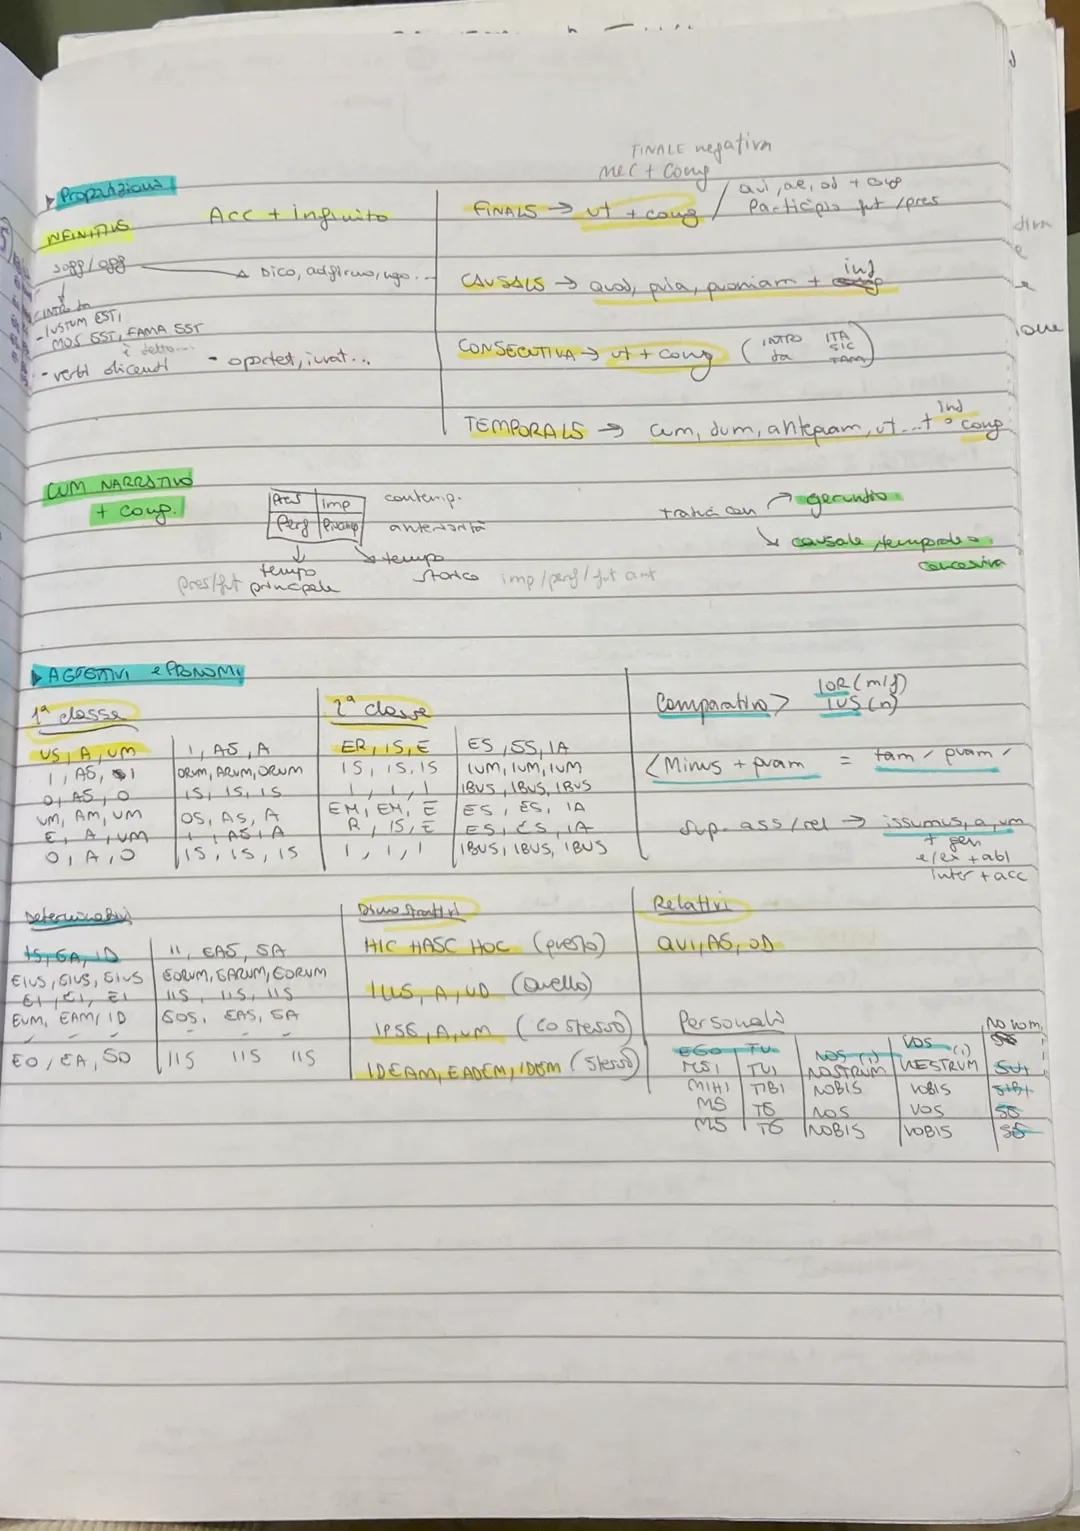 FINALE negativa
nec + cong
▸ Proposizioni
INFINITIVE
Acc + infinito
sogg/ogg
Dico, adfirmo, nego...
INTRO da
- IUSTUM EST,
MOS EST, FAMA EST
è detto...
- verbi dicendi
- oportet, iuvat...
FINALE → ut + cong / qui, ae, od + cong
Participio fut / pres
CAUSALE → quod, quia, quoniam + ind
CONSECUTIVA → ut + cong ( INTRO da ITA SIC TAM )
TEMPORALE → cum, dum, antequam, ut...+ ind o cong
CUM NARRATIVO
+ cong.
Pres | imp contemp.
Perf | Piuccp anteriorità
tempo principale
pres/fut
tempo storico
imp/perf/fut ant
traduz con → gerundio
↘ causale, temporale o concessiva
▸ AGGETTIVI e PRONOMI
1ª classe
US, A, UM | I, AE, A
I, AE, I | ORUM, ARUM, ORUM
O, AE, O | IS, IS, IS
UM, AM, UM | OS, AS, A
E, A, UM | I, AE, A
O, A, O | IS, IS, IS
2ª classe
ER, IS, E | ES, ES, IA
IS, IS, IS | IUM, IUM, IUM
I, I, I | IBUS, IBUS, IBUS
EM, EM, E | ES, ES, IA
R, IS, E | ES, ES, IA
I, I, I | IBUS, IBUS, IBUS
Comparativo > IOR (m/f)
IUS (n)
< Minus + quam = tam / quam /
Sup. ass/rel → issumus, a, um
+ gen
e/ex + abl
inter + acc
Determinativi
IS, EA, ID | II, EAE, EA
EIUS, EIUS, EIUS | EORUM, EARUM, EORUM
EI, EI, EI | IIS, IIS, IIS
EUM, EAM, ID | EOS, EAS, EA
- - - | - - -
EO, EA, EO | IIS IIS IIS
Dimostrativi
HIC HAEC HOC (questo)
ILLE, A, UD (quello)
IPSE, A, UM (lo stesso)
IDEAM, EADEM, IDEM (stesso)
Relativi
QUI, AE, OD
Personali
EGO | TU | NOS (i) | VOS (i) | NO nom.
MEI | TUI | NOSTRUM | VESTRUM | SUI
MIHI | TIBI | NOBIS | VOBIS | SIBI
ME | TE | NOS | VOS | SE
ME | TE | NOBIS | VOBIS | SE